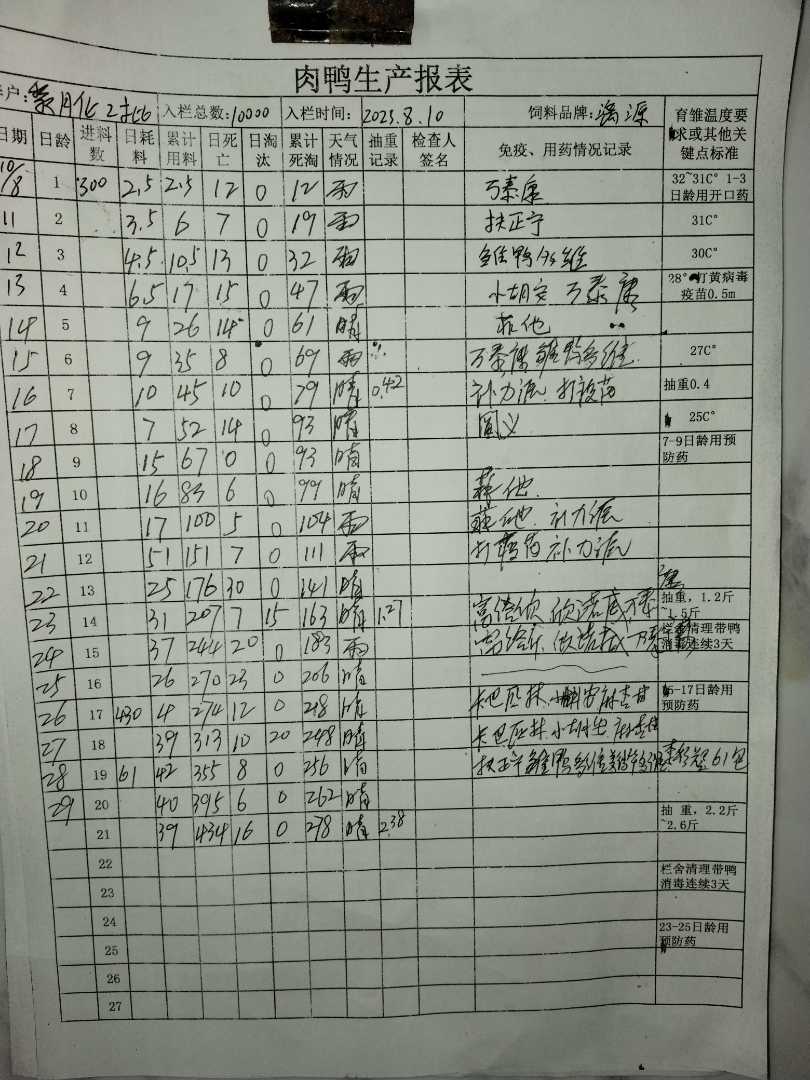 肉鸭生产报表
户: 入栏总数:10000 入栏时间: 2025.8.10 饲料品牌: 源 育雏温度要求或其他关键点标准
日期 日龄 进料数 日耗料 累计用料 日死亡 日淘汰 累计死淘 天气情况 抽重记录 检查人签名 免疫、用药情况记录
10/8 1 300 2.5 2.5 12 0 12 雨 万泰康 32~31C° 1-3日龄用开口药
11 2 3.5 6 7 0 19 雨 扶正宁 31C°
12 3 4.5 10.5 13 0 32 雨 雏鸭多维 30C°
13 4 6.5 17 15 0 47 雨 万泰康 28° 打黄病毒疫苗0.5m
14 5 9 26 14 0 61 晴
15 6 9 35 8 0 69 雨 万泰康 雏鸭多维 27C°
16 7 10 45 10 0 79 晴 0.42 补力 打疫苗 抽重0.4
17 8 7 52 14 0 93 晴 25C°
18 9 15 67 0 0 93 晴 7-9日龄用预防药
19 10 16 83 6 0 99 晴
20 11 17 100 5 0 104 雨 补力
21 12 51 151 7 0 111 雨 补力
22 13 25 176 30 0 141 晴
23 14 31 207 7 15 163 晴 1.27 抽重, 1.2斤~1.5斤
24 15 37 244 20 0 183 雨 栏舍清理带鸭消毒连续3天
25 16 26 270 23 0 206 晴
26 17 430 4 274 12 0 218 晴 卡巴匹林 15-17日龄用预防药
27 18 39 313 10 20 248 晴 卡巴匹林
28 19 61 42 355 8 0 256 晴 扶正宁 雏鸭多维 61包
29 20 40 395 6 0 262 晴
21 39 434 16 0 278 晴 2.38 抽 重, 2.2斤~2.6斤
22
23 栏舍清理带鸭消毒连续3天
24
25 23-25日龄用预防药
26
27